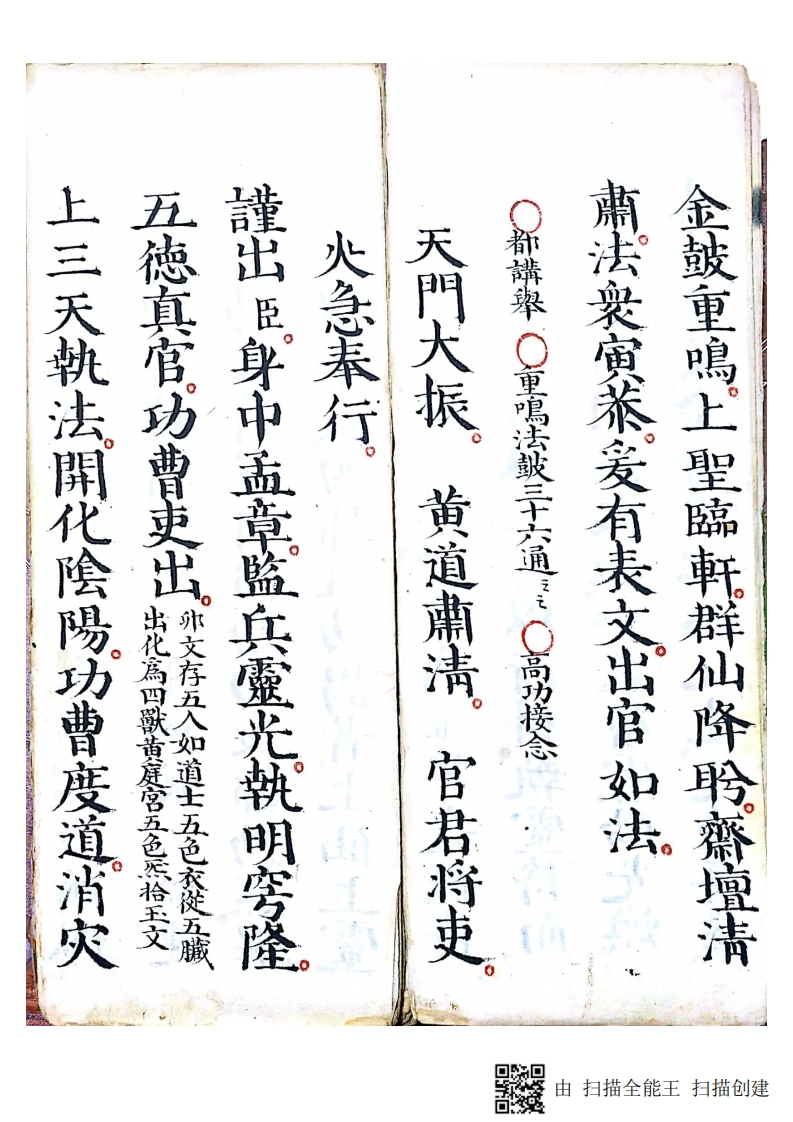 金皷重鳴。上聖臨軒。群仙降盻。齋壇清
肅。法衆寅恭。爰有表文。出官如法。
○都講舉○重鳴法皷三十六通〻〻○高功接念
天門大振。 黄道肅清。 官君将吏。
火急奉行。
謹出臣。身中孟章。監兵靈光。執明穹隆。
五徳真官。功曹吏出。
卯文存五人如道士五色衣從五臟
出化為四獸黄庭宮五色炁拾玉文
上三天執法。開化陰陽。功曹度道。消灾
由 扫描全能王 扫描创建